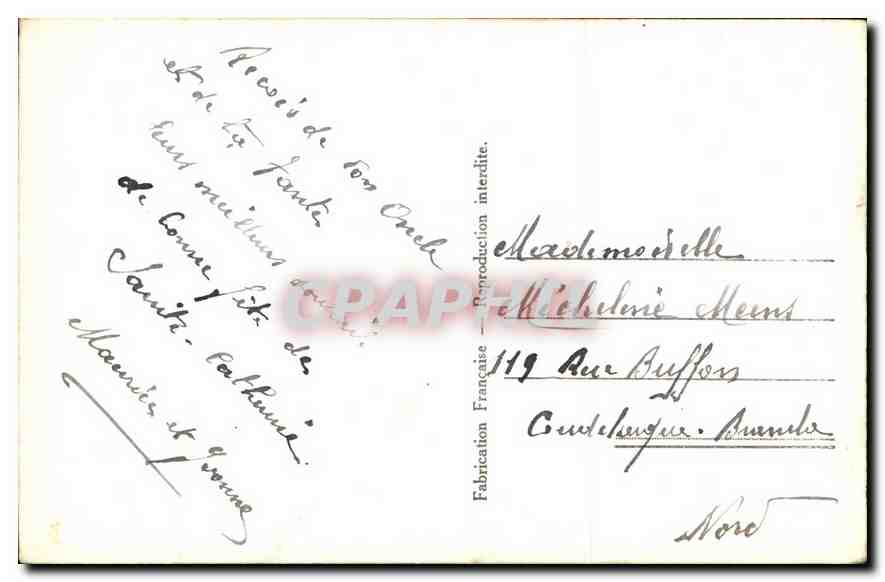 Recois de ton Oncle
et de ta Tante
leurs meilleurs souhaits
de bonne fête de
Sainte-Catherine.
Maurice et Yvonne
Fabrication Française — Reproduction interdite.
CPAPHIL
Mademoiselle
Micheline Meens
119 Rue Buffon
Coudekerque-Branche
Nord